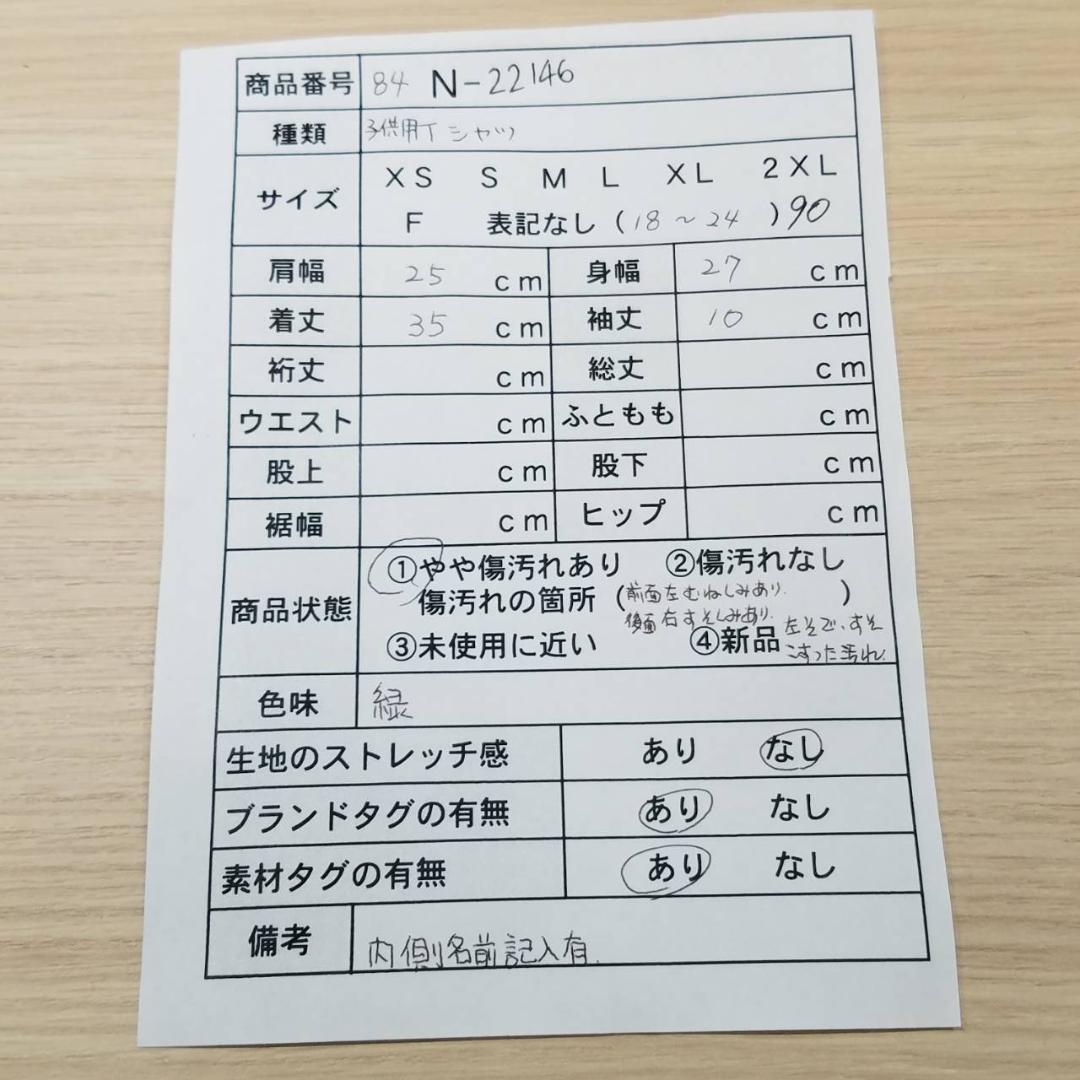 商品番号 84 N-22146
種類 子供用Tシャツ
サイズ XS S M L XL 2XL
F 表記なし (18~24) 90
肩幅 25 cm 身幅 27 cm
着丈 35 cm 袖丈 10 cm
裄丈 cm 総丈 cm
ウエスト cm ふともも cm
股上 cm 股下 cm
裾幅 cm ヒップ cm
商品状態 ①やや傷汚れあり ②傷汚れなし
傷汚れの箇所 (前面左むねしみあり. )
後面右すそしみあり.
③未使用に近い ④新品 左そで、すそ
こすった汚れ.
色味 緑
生地のストレッチ感 あり なし
ブランドタグの有無 あり なし
素材タグの有無 あり なし
備考 内側名前記入有.